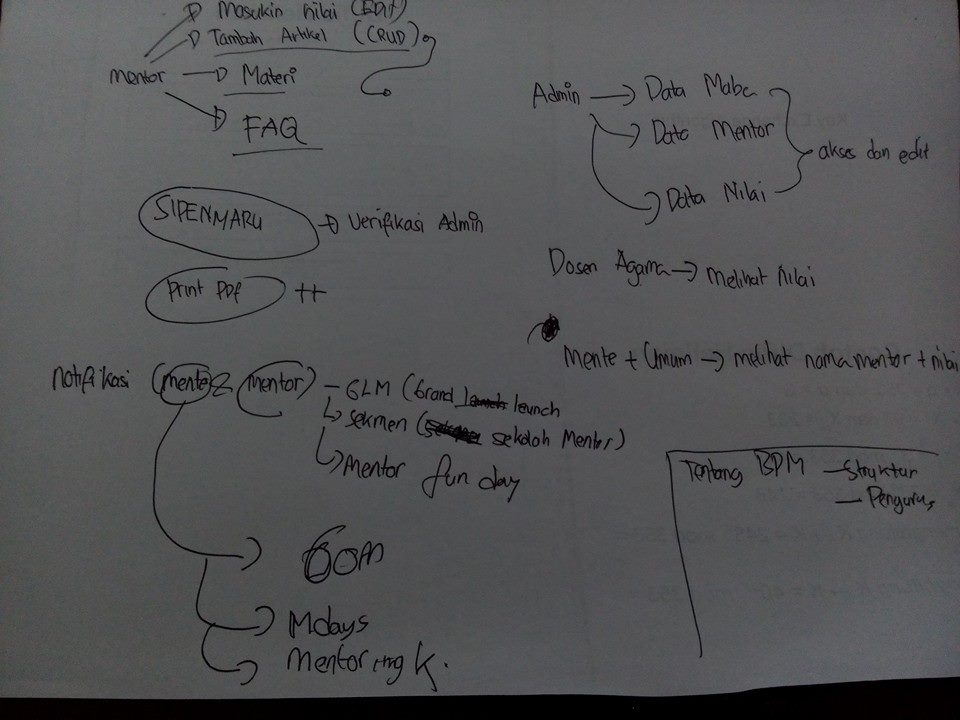 Masukin nilai (EDIT)
Tambah Artikel (CRUD)
mentor → Materi
FAQ
SIPENMARU → Verifikasi Admin
Print Pdf ++
Notifikasi (mente & mentor) - GLM (Grand launch
sekmen (sekolah Mentor)
Mentor fun day
GOM
Mdays
Mentoring K.
Admin → Data Maba
Data Mentor
Data Nilai
akses dan edit
Dosen Agama → melihat nilai
Mente + Umum → melihat nama mentor + nilai
Tentang BPM - Struktur
- Pengurus